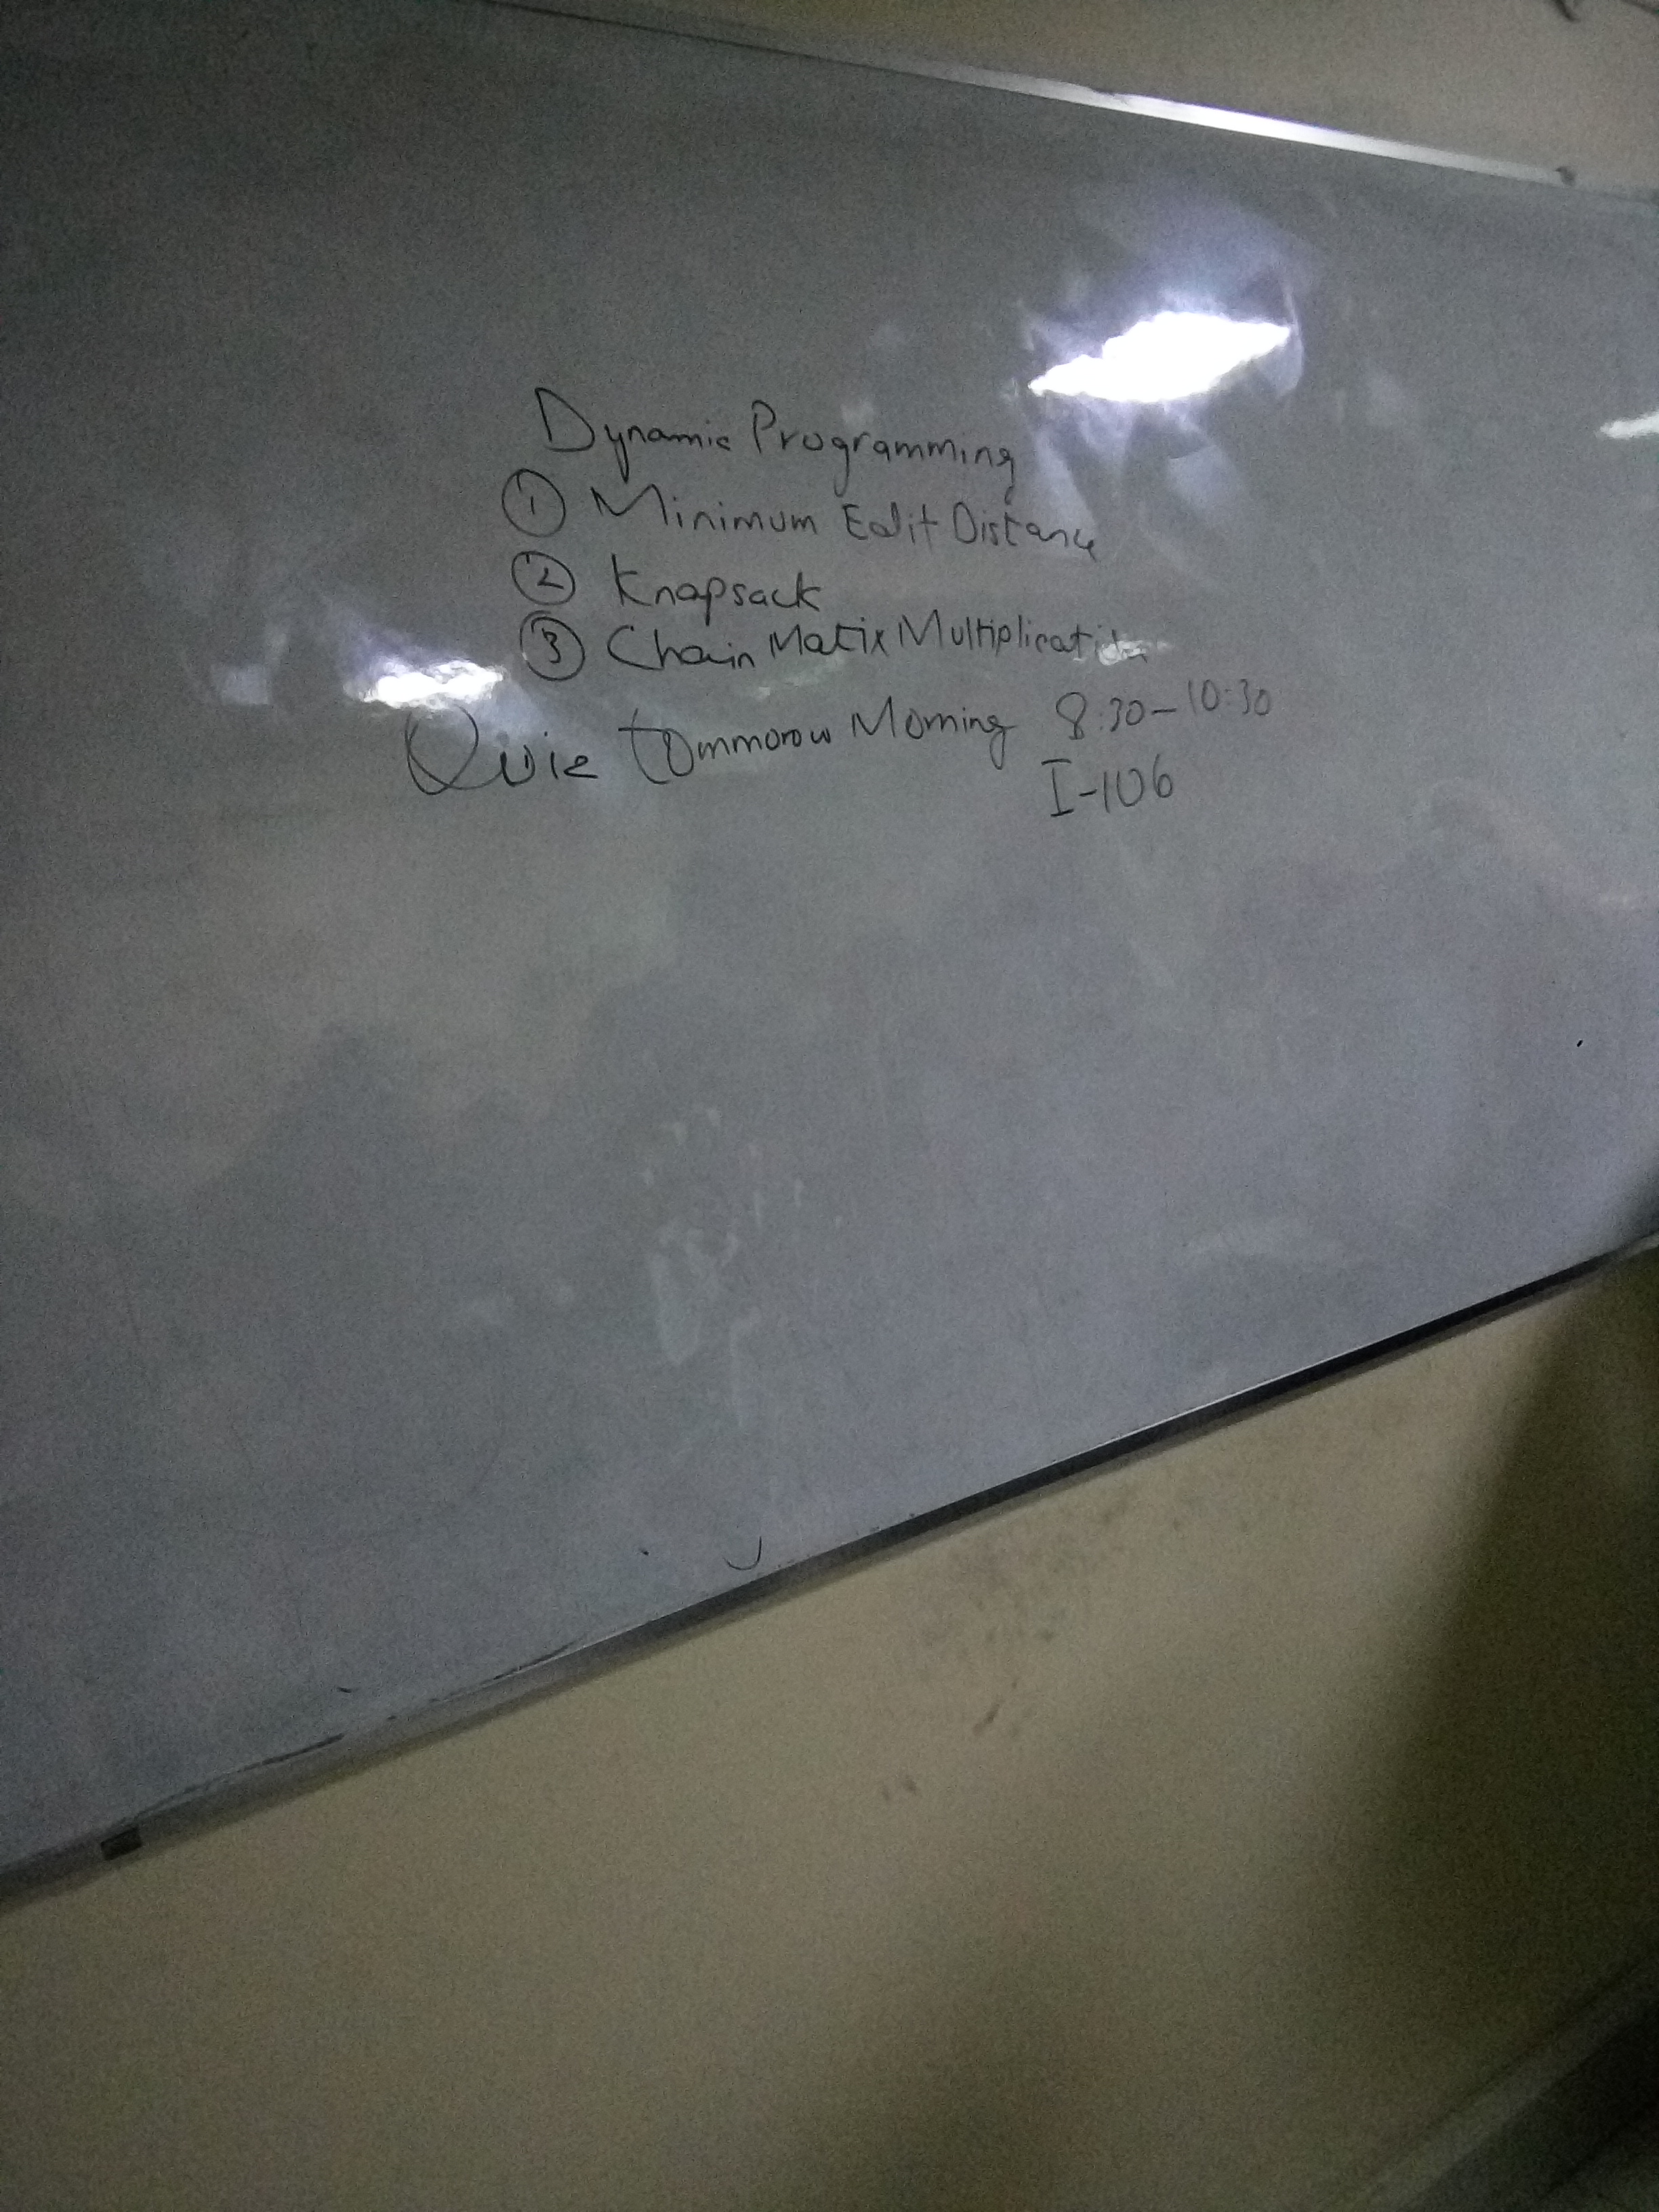 Dynamic Programming
① Minimum Edit Distance
② Knapsack
③ Chain Matix Multiplication
Quiz tommorow Morning 8:30-10:30
I-106